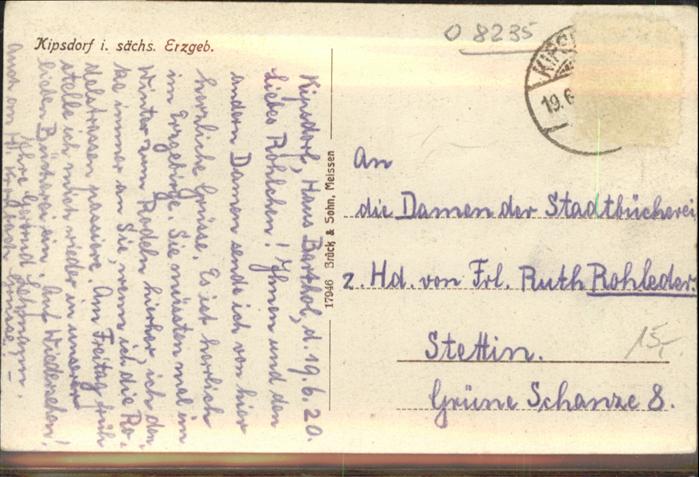 Kipsdorf i. sächs. Erzgeb.
O 8235
KIPSD
19.6
Kipsdorf, Haus Barthol, d. 19.6.20.
Liebes Rohlehen! Ihnen und den
andern Damen sende ich von hier
herzliche Grüsse. Es ist herrlich
im Erzgebirge. Sie müssten mal im
Winter zum Rodeln hierher. Ich den-
ke immer an Sie, wenn ich die Ro-
delstrassen passiere. Am Freitag früh
stelle ich mich wieder in unserer
lieben Bücherei ein. Auf Wiedersehen!
Ihre Gertrud Lehmann.
Auch an Hl. Grüsse!
17946 Brück & Sohn, Meissen
An
die Damen der Stadtbücherei
z. Hd. von Frl. Ruth Rohleder.
Stettin.
Grüne Schanze 8.
15,-